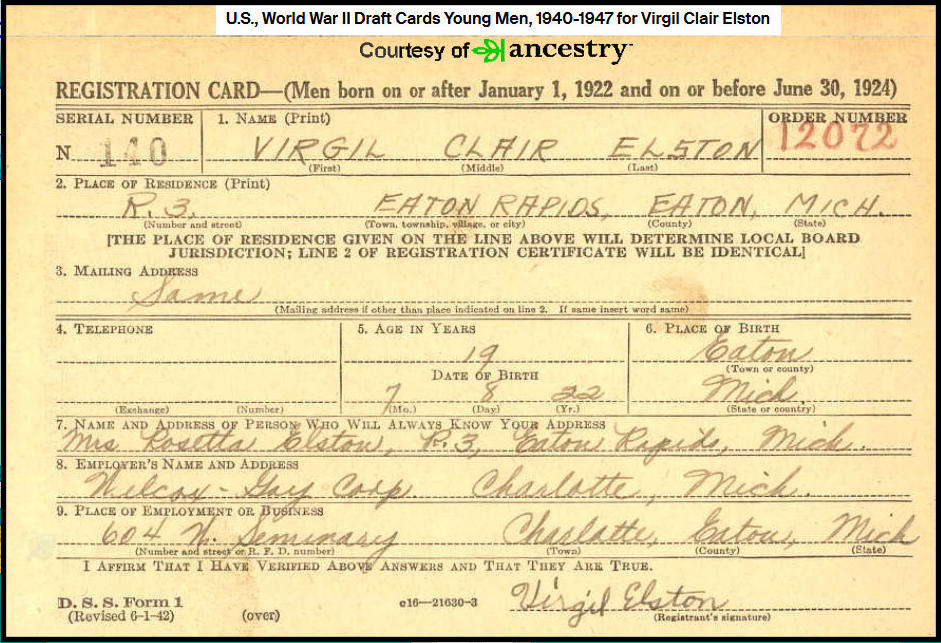 U.S., World War II Draft Cards Young Men, 1940-1947 for Virgil Clair Elston
Courtesy of ancestry
REGISTRATION CARD—(Men born on or after January 1, 1922 and on or before June 30, 1924)
SERIAL NUMBER 1. NAME (Print) ORDER NUMBER
N 140 VIRGIL CLAIR ELSTON 12072
(First) (Middle) (Last)
2. PLACE OF RESIDENCE (Print)
R.3, EATON RAPIDS, EATON, MICH.
(Number and street) (Town, township, village, or city) (County) (State)
[THE PLACE OF RESIDENCE GIVEN ON THE LINE ABOVE WILL DETERMINE LOCAL BOARD
JURISDICTION; LINE 2 OF REGISTRATION CERTIFICATE WILL BE IDENTICAL]
3. MAILING ADDRESS
Same
(Mailing address if other than place indicated on line 2. If same insert word same)
4. TELEPHONE 5. AGE IN YEARS 6. PLACE OF BIRTH
19 Eaton
(Town or county)
DATE OF BIRTH
7 8 22 Mich
(Exchange) (Number) (Mo.) (Day) (Yr.) (State or country)
7. NAME AND ADDRESS OF PERSON WHO WILL ALWAYS KNOW YOUR ADDRESS
Mrs Rosetta Elston, R.3, Eaton Rapids, Mich.
8. EMPLOYER'S NAME AND ADDRESS
Wilcox-Gay Corp. Charlotte, Mich.
9. PLACE OF EMPLOYMENT OR BUSINESS
604 N. Seminary Charlotte, Eaton, Mich
(Number and street or R. F. D. number) (Town) (County) (State)
I AFFIRM THAT I HAVE VERIFIED ABOVE ANSWERS AND THAT THEY ARE TRUE.
D. S. S. Form 1
(Revised 6-1-42) (over) c16—21630-3 Virgil Elston
(Registrant's signature)